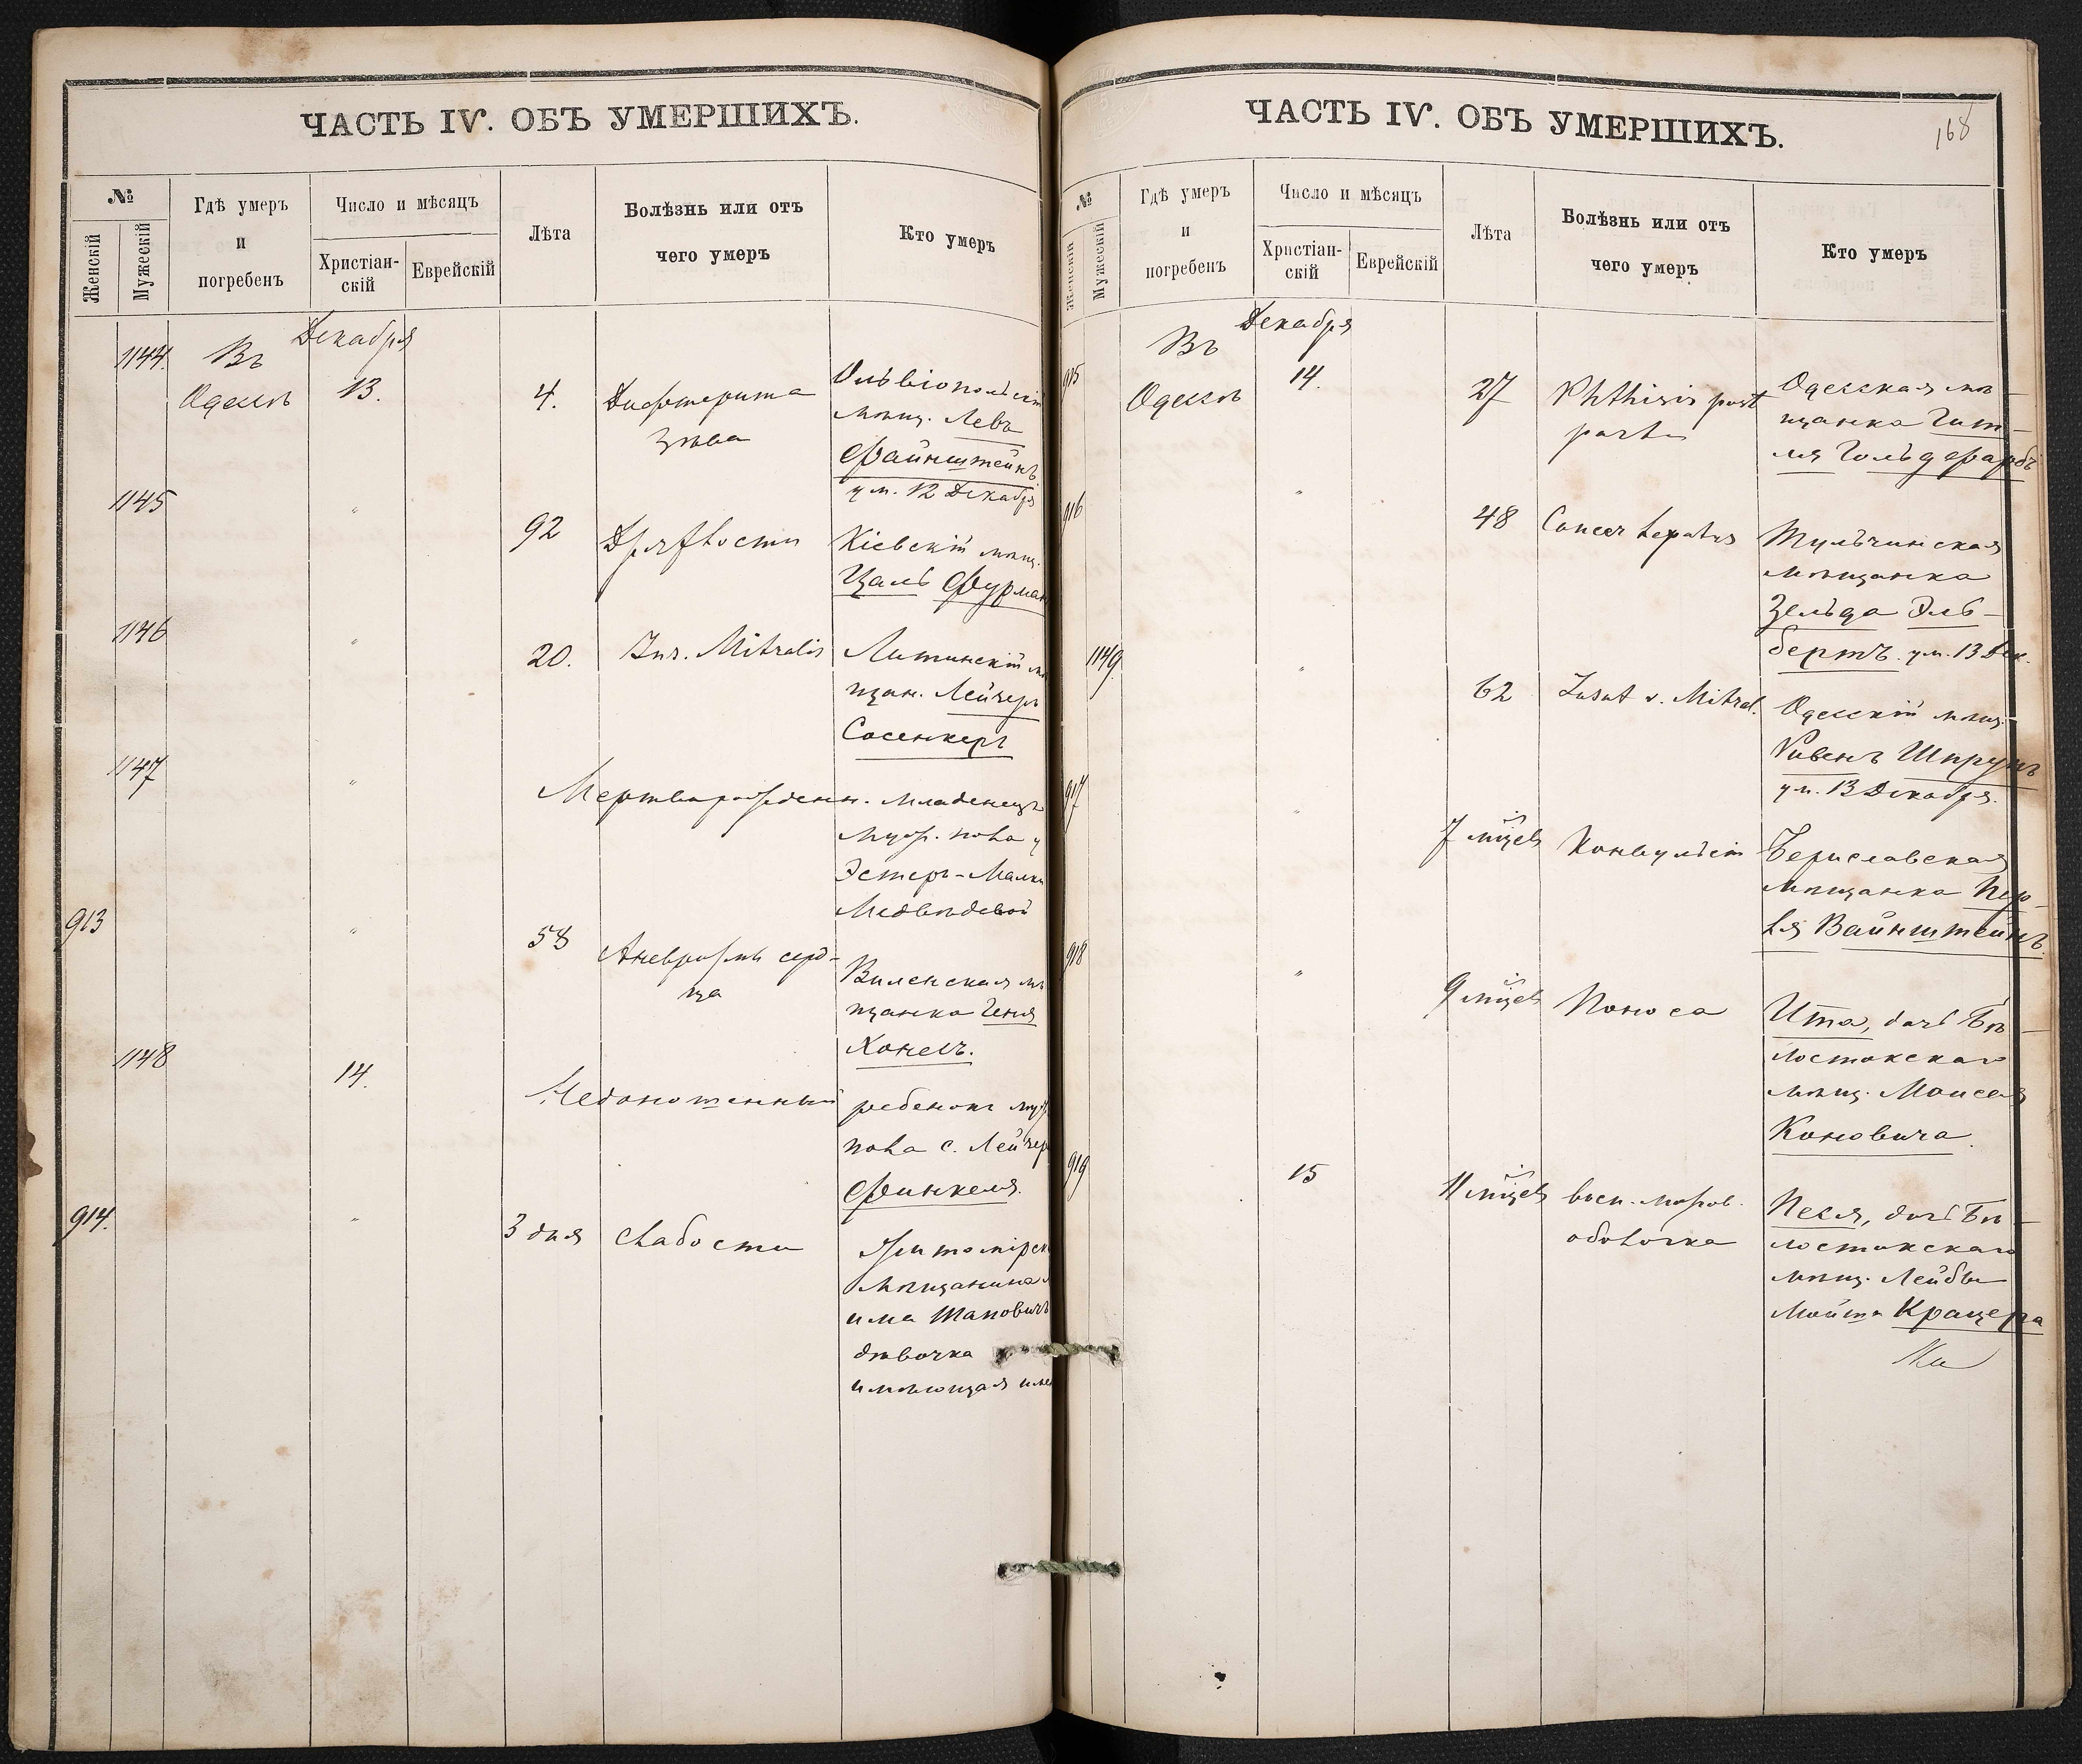 ЧАСТЬ IV. ОБЪ УМЕРШИХЪ.
№
Женскій
Мужескій
Гдѣ умеръ
и
погребенъ
Число и мѣсяцъ
Христіан-
скій
Еврейскій
Лѣта
Болѣзнь или отъ
чего умеръ
Кто умеръ
Декабря
1144. Въ
Одессѣ 13. 4. Дифтерита
зѣва
Ольвіопольскій
мѣщ. Левъ
Файнштейнъ
ум. 12 Декабря
1145 " 92 Дряхлости Кіевскій мѣщ.
Цаль Фурман
1146 " 20. Ins. Mitralis Литинскій мѣ
щан. Лейзеръ
Сосенкеръ
1147 " Мертворожденн. младенецъ
муж. пола у
Эстеръ-Малки
Медвѣдевой
913 " 58 Аневризмъ серд-
ца
Виленская мѣ
щанка Геня
Хонесъ.
1148 14. Недоношенный ребенокъ муж
пола с. Лейзера
Финкеля.
914. " 3 дня слабости Житомірск
мѣщанина
има Шаповичъ
дѣвочка
имѣющая име
ЧАСТЬ IV. ОБЪ УМЕРШИХЪ.
168
№
Женскій
Мужескій
Гдѣ умеръ
и
погребенъ
Число и мѣсяцъ
Христіан-
скій
Еврейскій
Лѣта
Болѣзнь или отъ
чего умеръ
Кто умеръ
Декабря
Въ
915 Одессѣ 14. 27 Phthisis post
partu
Одесская мѣ-
щанка Гит-
ля Гольдфарбъ
916 " 48 Cancer hepatis Тульчинская
мѣщанка
Зельда Эль-
бертъ. ум. 13 Дек.
1149 " 62 Insut v. Mitral. Одесскій мѣщ.
Рувенъ Шпрунъ
ум. 13 Декабря.
917 " 7 мѣсяцевъ Конвульсій Бериславская
мѣщанка Пер-
ля Вайнштейнъ.
918 " 9 мѣсяцевъ Поноса Ита, дочь Бѣ-
лостокскаго
мѣщ. Моисея
Коновича.
919 15 11 мѣсяцевъ восп. мозгов.
оболочка
Песя, дочь Бѣ-
лостокскаго
мѣщ. Лейбы
Крацера